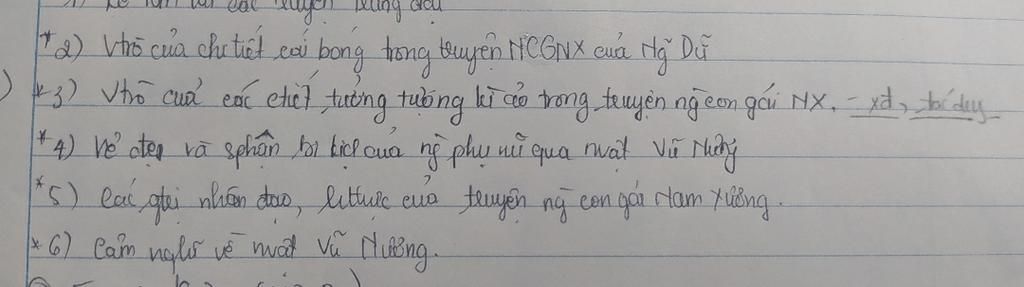 1) Kể tóm tắt các truyện trung đại
*2) Vtrò của chi tiết cái bóng trong truyện NCGNX của Ng Dữ
*3) Vtrò của các chi tiết tưởng tượng kì ảo trong truyện ng con gái NX. - xđ,
*4) Vẻ đẹp và sphận bi kịch của ng phụ nữ qua nvật Vũ Nương
*5) Các gtrị nhân đạo, hiện thực của truyện ng con gái Nam Xương.
*6) Cảm nghĩ về nvật Vũ Nương.